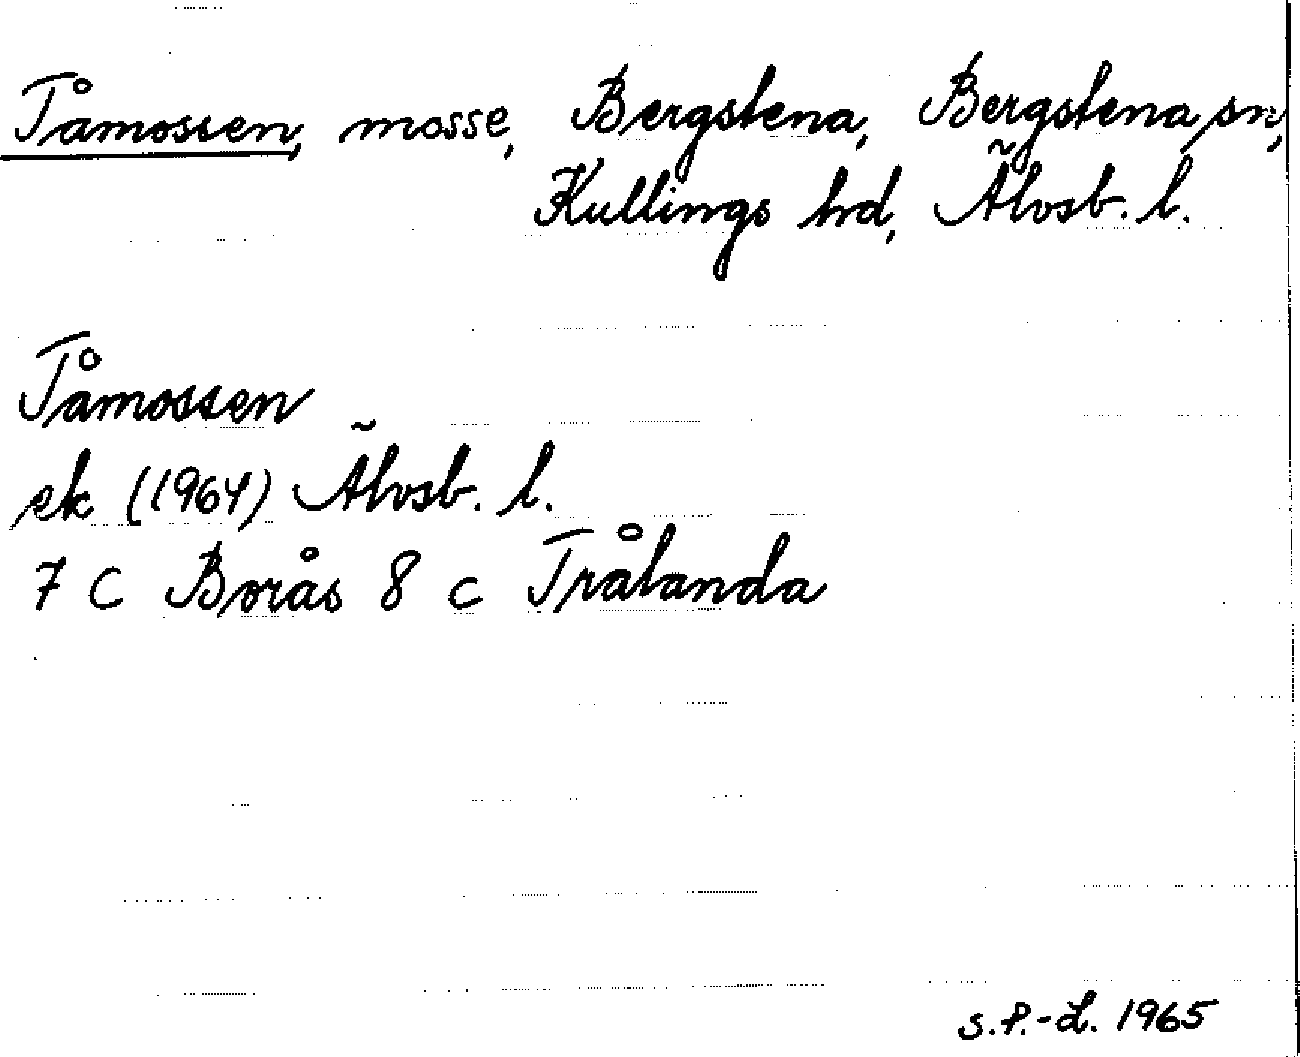 Tåmossen, mosse, Bergstena, Bergstena sn,
Kullings hd, Älvsb. l.
Tåmossen
ek (1964) Älvsb. l.
7 C Borås 8 c Trålanda
S.P.-L. 1965